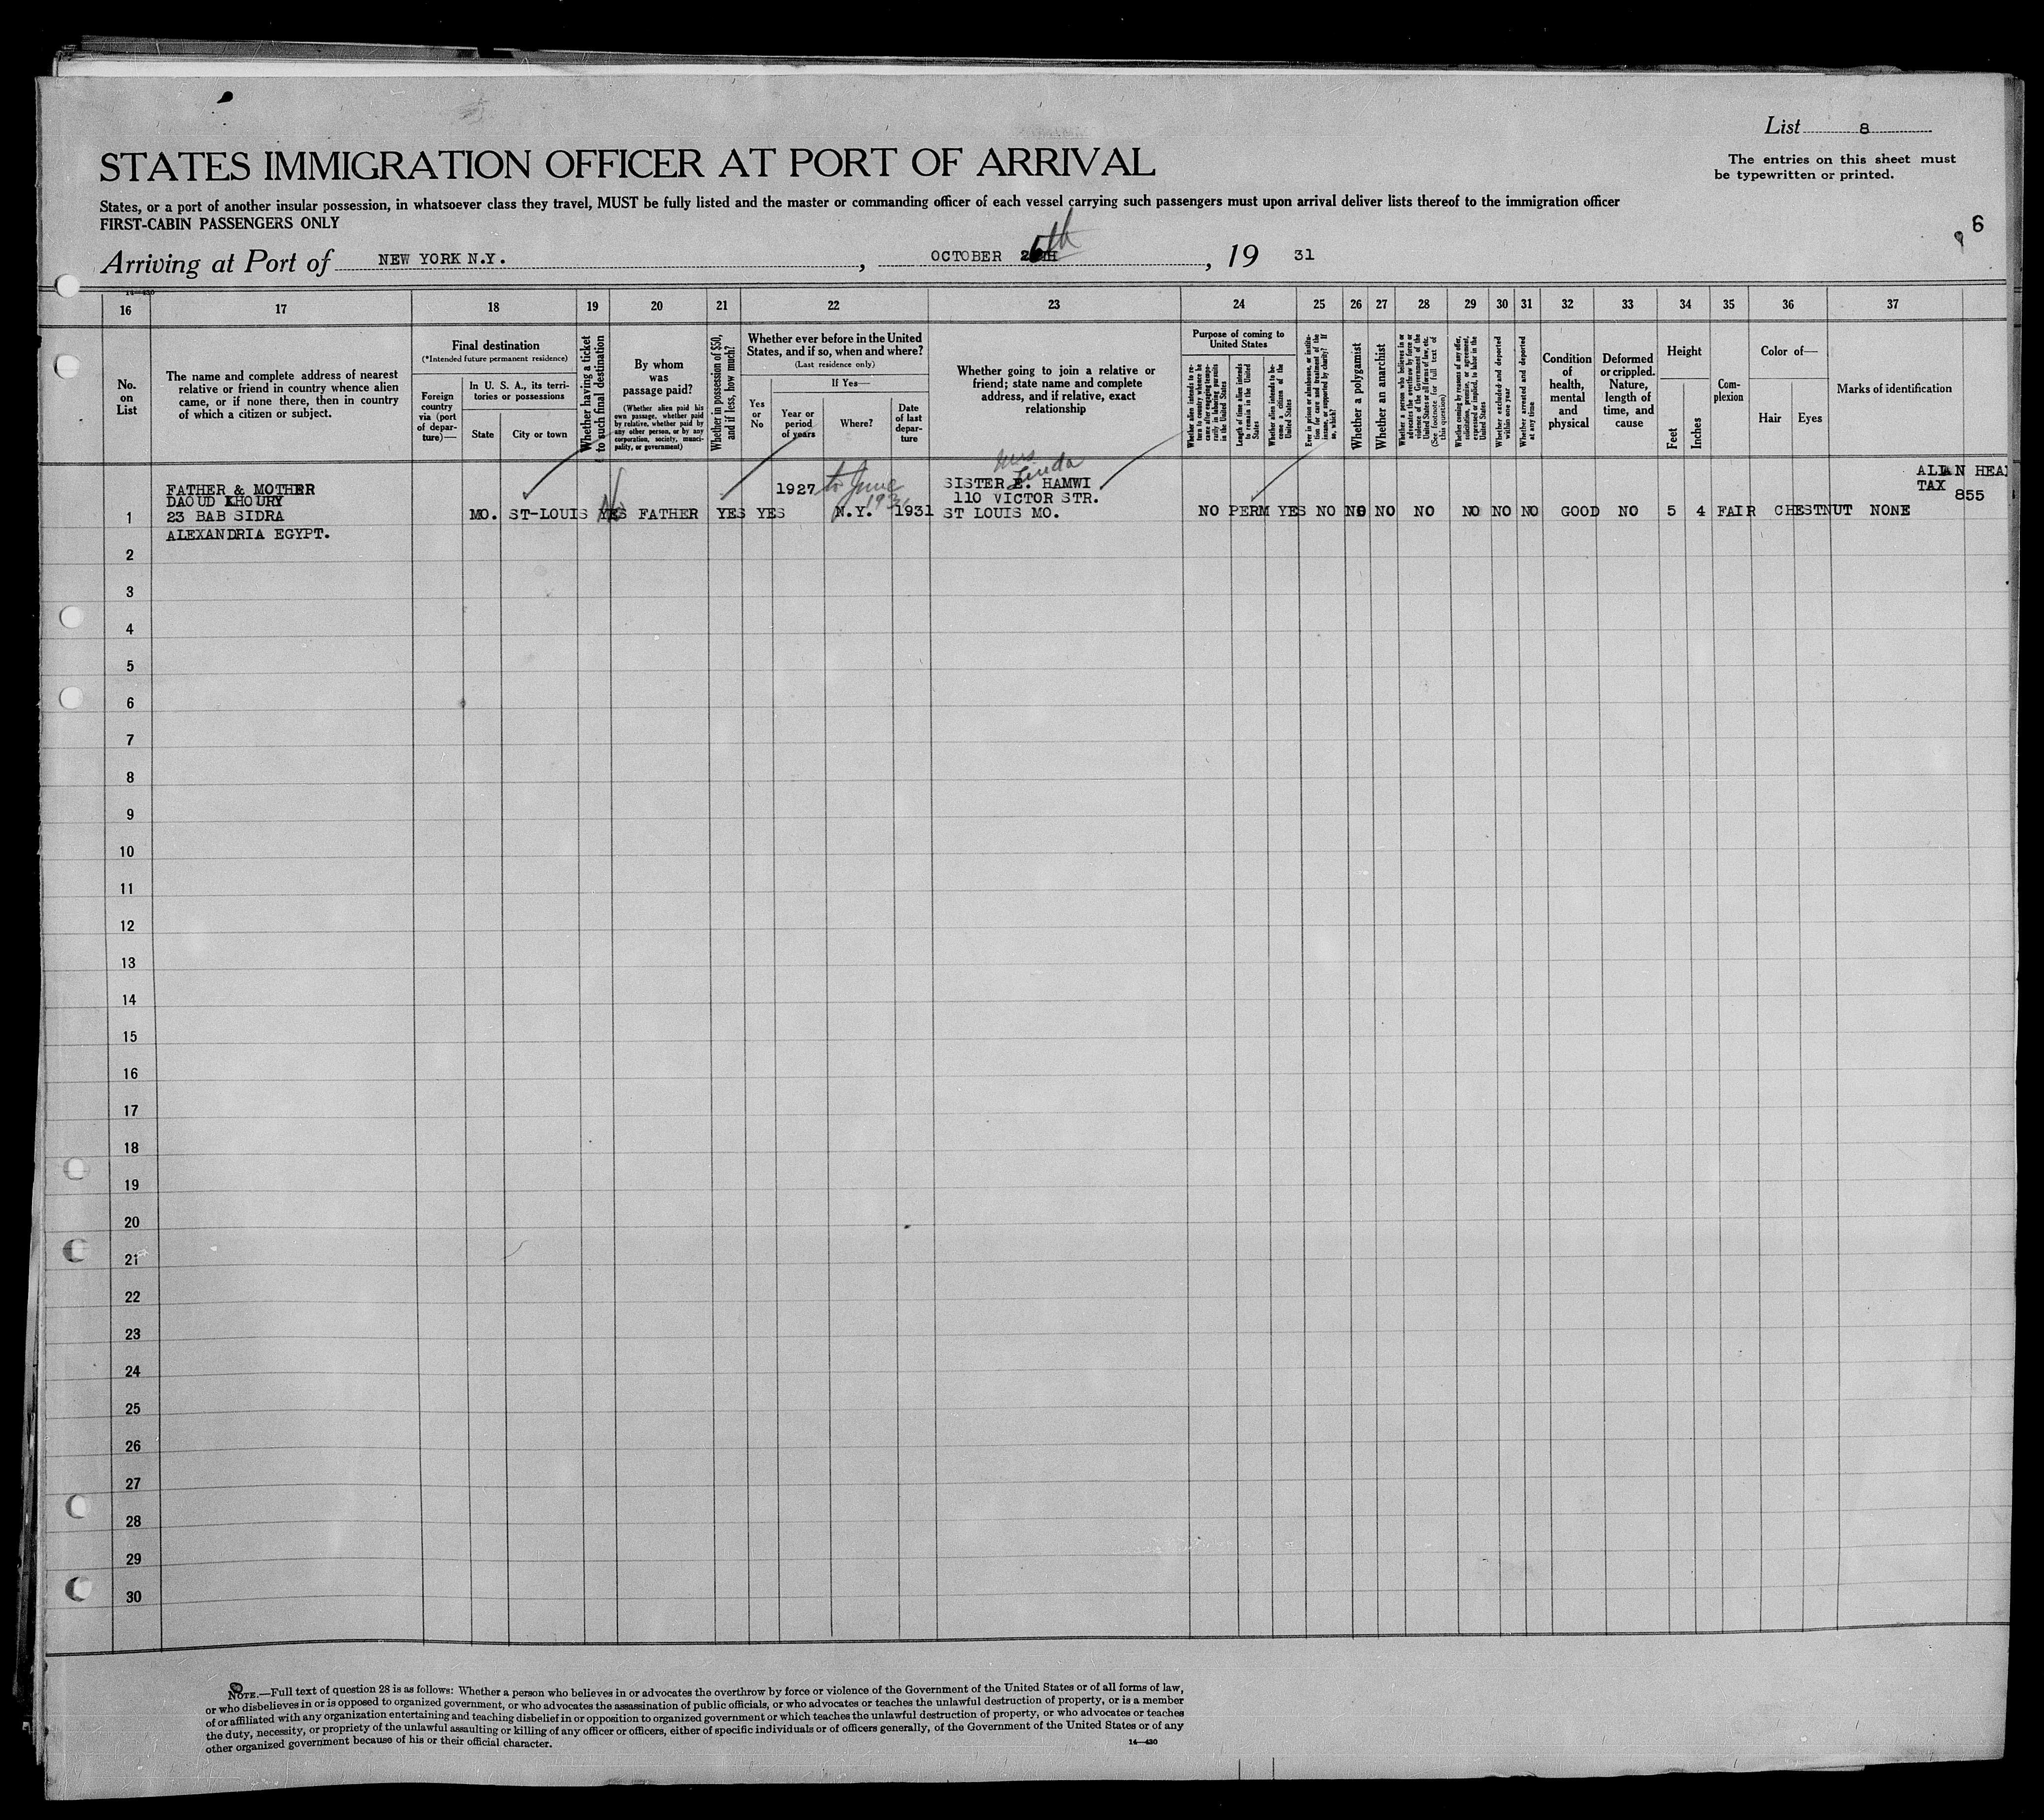 List 8
The entries on this sheet must
be typewritten or printed.
STATES IMMIGRATION OFFICER AT PORT OF ARRIVAL
States, or a port of another insular possession, in whatsoever class they travel, MUST be fully listed and the master or commanding officer of each vessel carrying such passengers must upon arrival deliver lists thereof to the immigration officer
FIRST-CABIN PASSENGERS ONLY
6
Arriving at Port of NEW YORK N.Y. , OCTOBER 6th , 19 31
14—430
16 17 18 19 20 21 22 23 24 25 26 27 28 29 30 31 32 33 34 35 36 37
No.
on
List
The name and complete address of nearest
relative or friend in country whence alien
came, or if none there, then in country
of which a citizen or subject.
Final destination
(*Intended future permanent residence)
Foreign
country
via (port
of depar-
ture)—
In U. S. A., its terri-
tories or possessions
State
City or town
Whether having a ticket
to such final destination
By whom
was
passage paid?
(Whether alien paid his
own passage, whether paid
by relative, whether paid by
any other person, or by any
corporation, society, munici-
pality, or government)
Whether in possession of $50,
and if less, how much?
Whether ever before in the United
States, and if so, when and where?
(Last residence only)
Yes
or
No
If Yes—
Year or
period
of years
Where?
Date
of last
depar-
ture
Whether going to join a relative or
friend; state name and complete
address, and if relative, exact
relationship
Purpose of coming to
United States
Whether alien intends to re-
turn to country whence he
came after engaging tempo-
rarily in laboring pursuits
in the United States
Length of time alien intends
to remain in the United
States
Whether alien intends to be-
come a citizen of the
United States
Ever in prison or almshouse, or institu-
tion for care and treatment of the
insane, or supported by charity? If
so, which?
Whether a polygamist
Whether an anarchist
Whether a person who believes in or
advocates the overthrow by force or
violence of the Government of the
United States or all forms of law, etc.
(See footnote for full text of
this question)
Whether coming by reason of any offer,
solicitation, promise, or agreement,
expressed or implied, to labor in the
United States
Whether excluded and deported
within one year
Whether arrested and deported
at any time
Condition
of
health,
mental
and
physical
Deformed
or crippled.
Nature,
length of
time, and
cause
Height
Feet
Inches
Com-
plexion
Color of—
Hair
Eyes
Marks of identification
Mrs
Linda
FATHER & MOTHER
DAOUD KHOURY
23 BAB SIDRA
ALEXANDRIA EGYPT.
1 MO. ST-LOUIS YES No FATHER YES YES 1927 to June 1931 N.Y. 1931
SISTER E. HAMWI
110 VICTOR STR.
ST LOUIS MO.
NO PERM YES NO NO NO NO NO NO NO GOOD NO 5 4 FAIR CHESTNUT NONE
TAX
855
2
3
4
5
6
7
8
9
10
11
12
13
14
15
16
17
18
19
20
21
22
23
24
25
26
27
28
29
30
NOTE.—Full text of question 28 is as follows: Whether a person who believes in or advocates the overthrow by force or violence of the Government of the United States or of all forms of law,
or who disbelieves in or is opposed to organized government, or who advocates the assassination of public officials, or who advocates or teaches the unlawful destruction of property, or is a member
of or affiliated with any organization entertaining and teaching disbelief in or opposition to organized government or which teaches the unlawful destruction of property, or who advocates or teaches
the duty, necessity, or propriety of the unlawful assaulting or killing of any officer or officers, either of specific individuals or of officers generally, of the Government of the United States or of any
other organized government because of his or their official character.
14—430